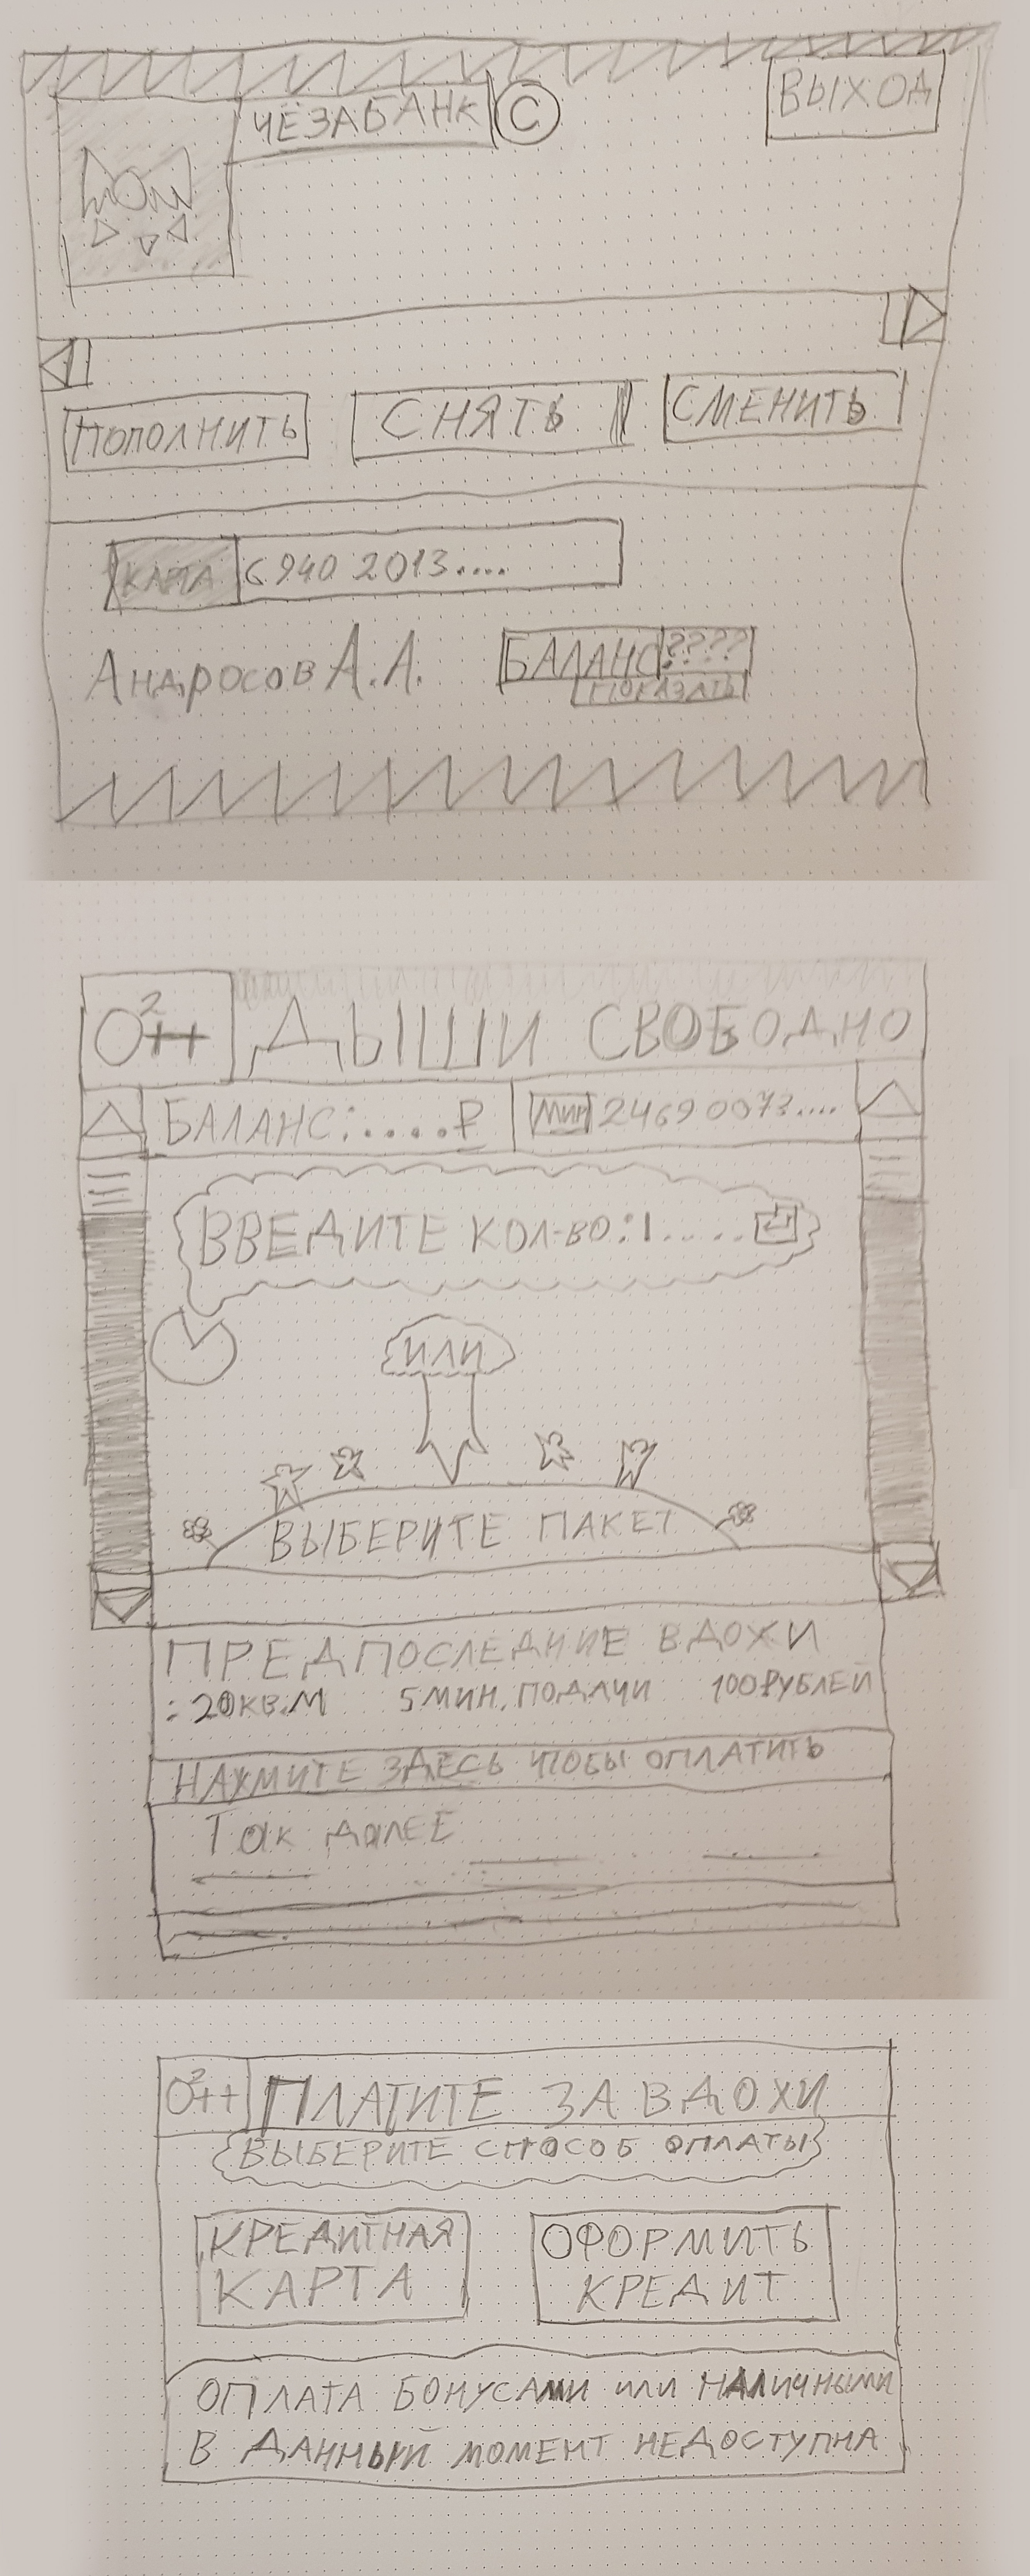 ЧЁЗАБАНК © ВЫХОД
ПОПОЛНИТЬ СНЯТЬ СМЕНИТЬ
КАРТА 6940 2013....
Андросов А.А. БАЛАНС ????
ПОКАЗАТЬ
О2++ ДЫШИ СВОБОДНО
БАЛАНС:.....₽ МИР 2469 0073....
ВВЕДИТЕ КОЛ-ВО:1.....
ИЛИ
ВЫБЕРИТЕ ПАКЕТ
ПРЕДПОСЛЕДНИЕ ВДОХИ
: 20КВ.М 5 МИН. ПОДАЧИ 100 РУБЛЕЙ
НАЖМИТЕ ЗДЕСЬ ЧТОБЫ ОПЛАТИТЬ
Так далЕЕ
О2++ ПЛАТИТЕ ЗА ВДОХИ
ВЫБЕРИТЕ СПОСОБ ОПЛАТЫ
КРЕДИТНАЯ КАРТА
ОФОРМИТЬ КРЕДИТ
ОПЛАТА БОНУСАМИ или НАЛИЧНЫМИ
В ДАННЫЙ МОМЕНТ НЕДОСТУПНА